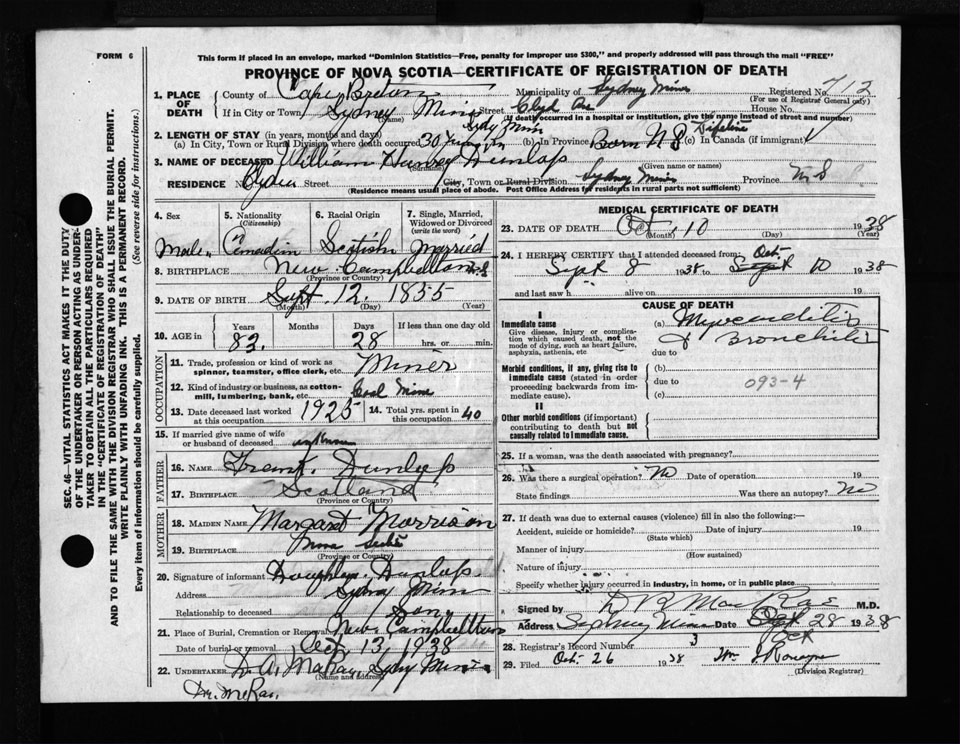 FORM 6
This form if placed in an envelope, marked "Dominion Statistics—Free, penalty for improper use $300," and properly addressed will pass through the mail "FREE"
PROVINCE OF NOVA SCOTIA—CERTIFICATE OF REGISTRATION OF DEATH
1. PLACE OF DEATH
County of Cape Breton Municipality of Sydney Mines Registered No. 712
(For use of Registrar General only)
If in City or Town Sydney Mines Street Clyde Ave House No.
(Name) (If death occurred in a hospital or institution, give the name instead of street and number)
2. LENGTH OF STAY (in years, months and days) Sydy Mines Lifetime
(a) In City, Town or Rural Division where death occurred 30 (b) In Province Born N S (c) In Canada (if immigrant)
3. NAME OF DECEASED William Dunlop
(Surname) (Given name or names)
RESIDENCE No. Street City, Town or Rural Division Sydney Mines Province N S
(Residence means usual place of abode. Post Office Address for residents in rural parts not sufficient)
4. Sex 5. Nationality (Citizenship) 6. Racial Origin 7. Single, Married, Widowed or Divorced (write the word)
Male Canadian Scotish Married
8. BIRTHPLACE New Campbellton N S
(Province or Country)
9. DATE OF BIRTH Sept. 12. 1855
(Month) (Day) (Year)
10. AGE in Years Months Days If less than one day old
83 28 hrs. or min.
OCCUPATION
11. Trade, profession or kind of work as spinner, teamster, office clerk, etc. Miner
12. Kind of industry or business, as cotton-mill, lumbering, bank, etc. Coal Mine
13. Date deceased last worked at this occupation 1925 14. Total yrs. spent in this occupation 40
15. If married give name of wife or husband of deceased unknown
FATHER
16. NAME Frank Dunlop
17. BIRTHPLACE Scotland
(Province or Country)
MOTHER
18. MAIDEN NAME Margaret Morrison
19. BIRTHPLACE Nova Scotia
(Province or Country)
20. Signature of informant Dunlop
Address Sydney Mines
Relationship to deceased Son
21. Place of Burial, Cremation or Removal New Campbellton
Date of burial or removal Oct, 13, 1938
22. UNDERTAKER D. A. Sydney Mines
(Name and address)
Dr. McRae
MEDICAL CERTIFICATE OF DEATH
23. DATE OF DEATH Oct, 10 1938
(Month) (Day) (Year)
24. I HEREBY CERTIFY that I attended deceased from: Oct.
Sept 8 1938 to Sept 10 1938
and last saw h alive on 19
CAUSE OF DEATH
I
Immediate cause
Give disease, injury or complication which caused death, not the mode of dying, such as heart failure, asphyxia, asthenia, etc
(a) Myocarditis
& Bronchitis
due to
Morbid conditions, if any, giving rise to immediate cause (stated in order proceeding backwards from immediate cause).
(b)
due to 093-4
(c)
II
Other morbid conditions (if important) contributing to death but not causally related to immediate cause.
25. If a woman, was the death associated with pregnancy?
26. Was there a surgical operation? No Date of operation 19
State findings Was there an autopsy? No
27. If death was due to external causes (violence) fill in also the following:—
Accident, suicide or homicide? Date of injury 19
(State which)
Manner of injury
(How sustained)
Nature of injury
Specify whether injury occurred in industry, in home, or in public place
Signed by D R MacRae M.D.
Address Sydney Mines Date Sept 28 1938
Oct
28. Registrar's Record Number 3
29. Filed Oct. 26 1938 Wm
(Division Registrar)
SEC. 46—VITAL STATISTICS ACT MAKES IT THE DUTY
OF THE UNDERTAKER OR PERSON ACTING AS UNDER-
TAKER TO OBTAIN ALL THE PARTICULARS REQUIRED
IN THE "CERTIFICATE OF REGISTRATION OF DEATH"
AND TO FILE THE SAME WITH THE DIVISION REGISTRAR WHO SHALL ISSUE THE BURIAL PERMIT.
WRITE PLAINLY WITH UNFADING INK. THIS IS A PERMANENT RECORD.
Every item of information should be carefully supplied. (See reverse side for instructions.)